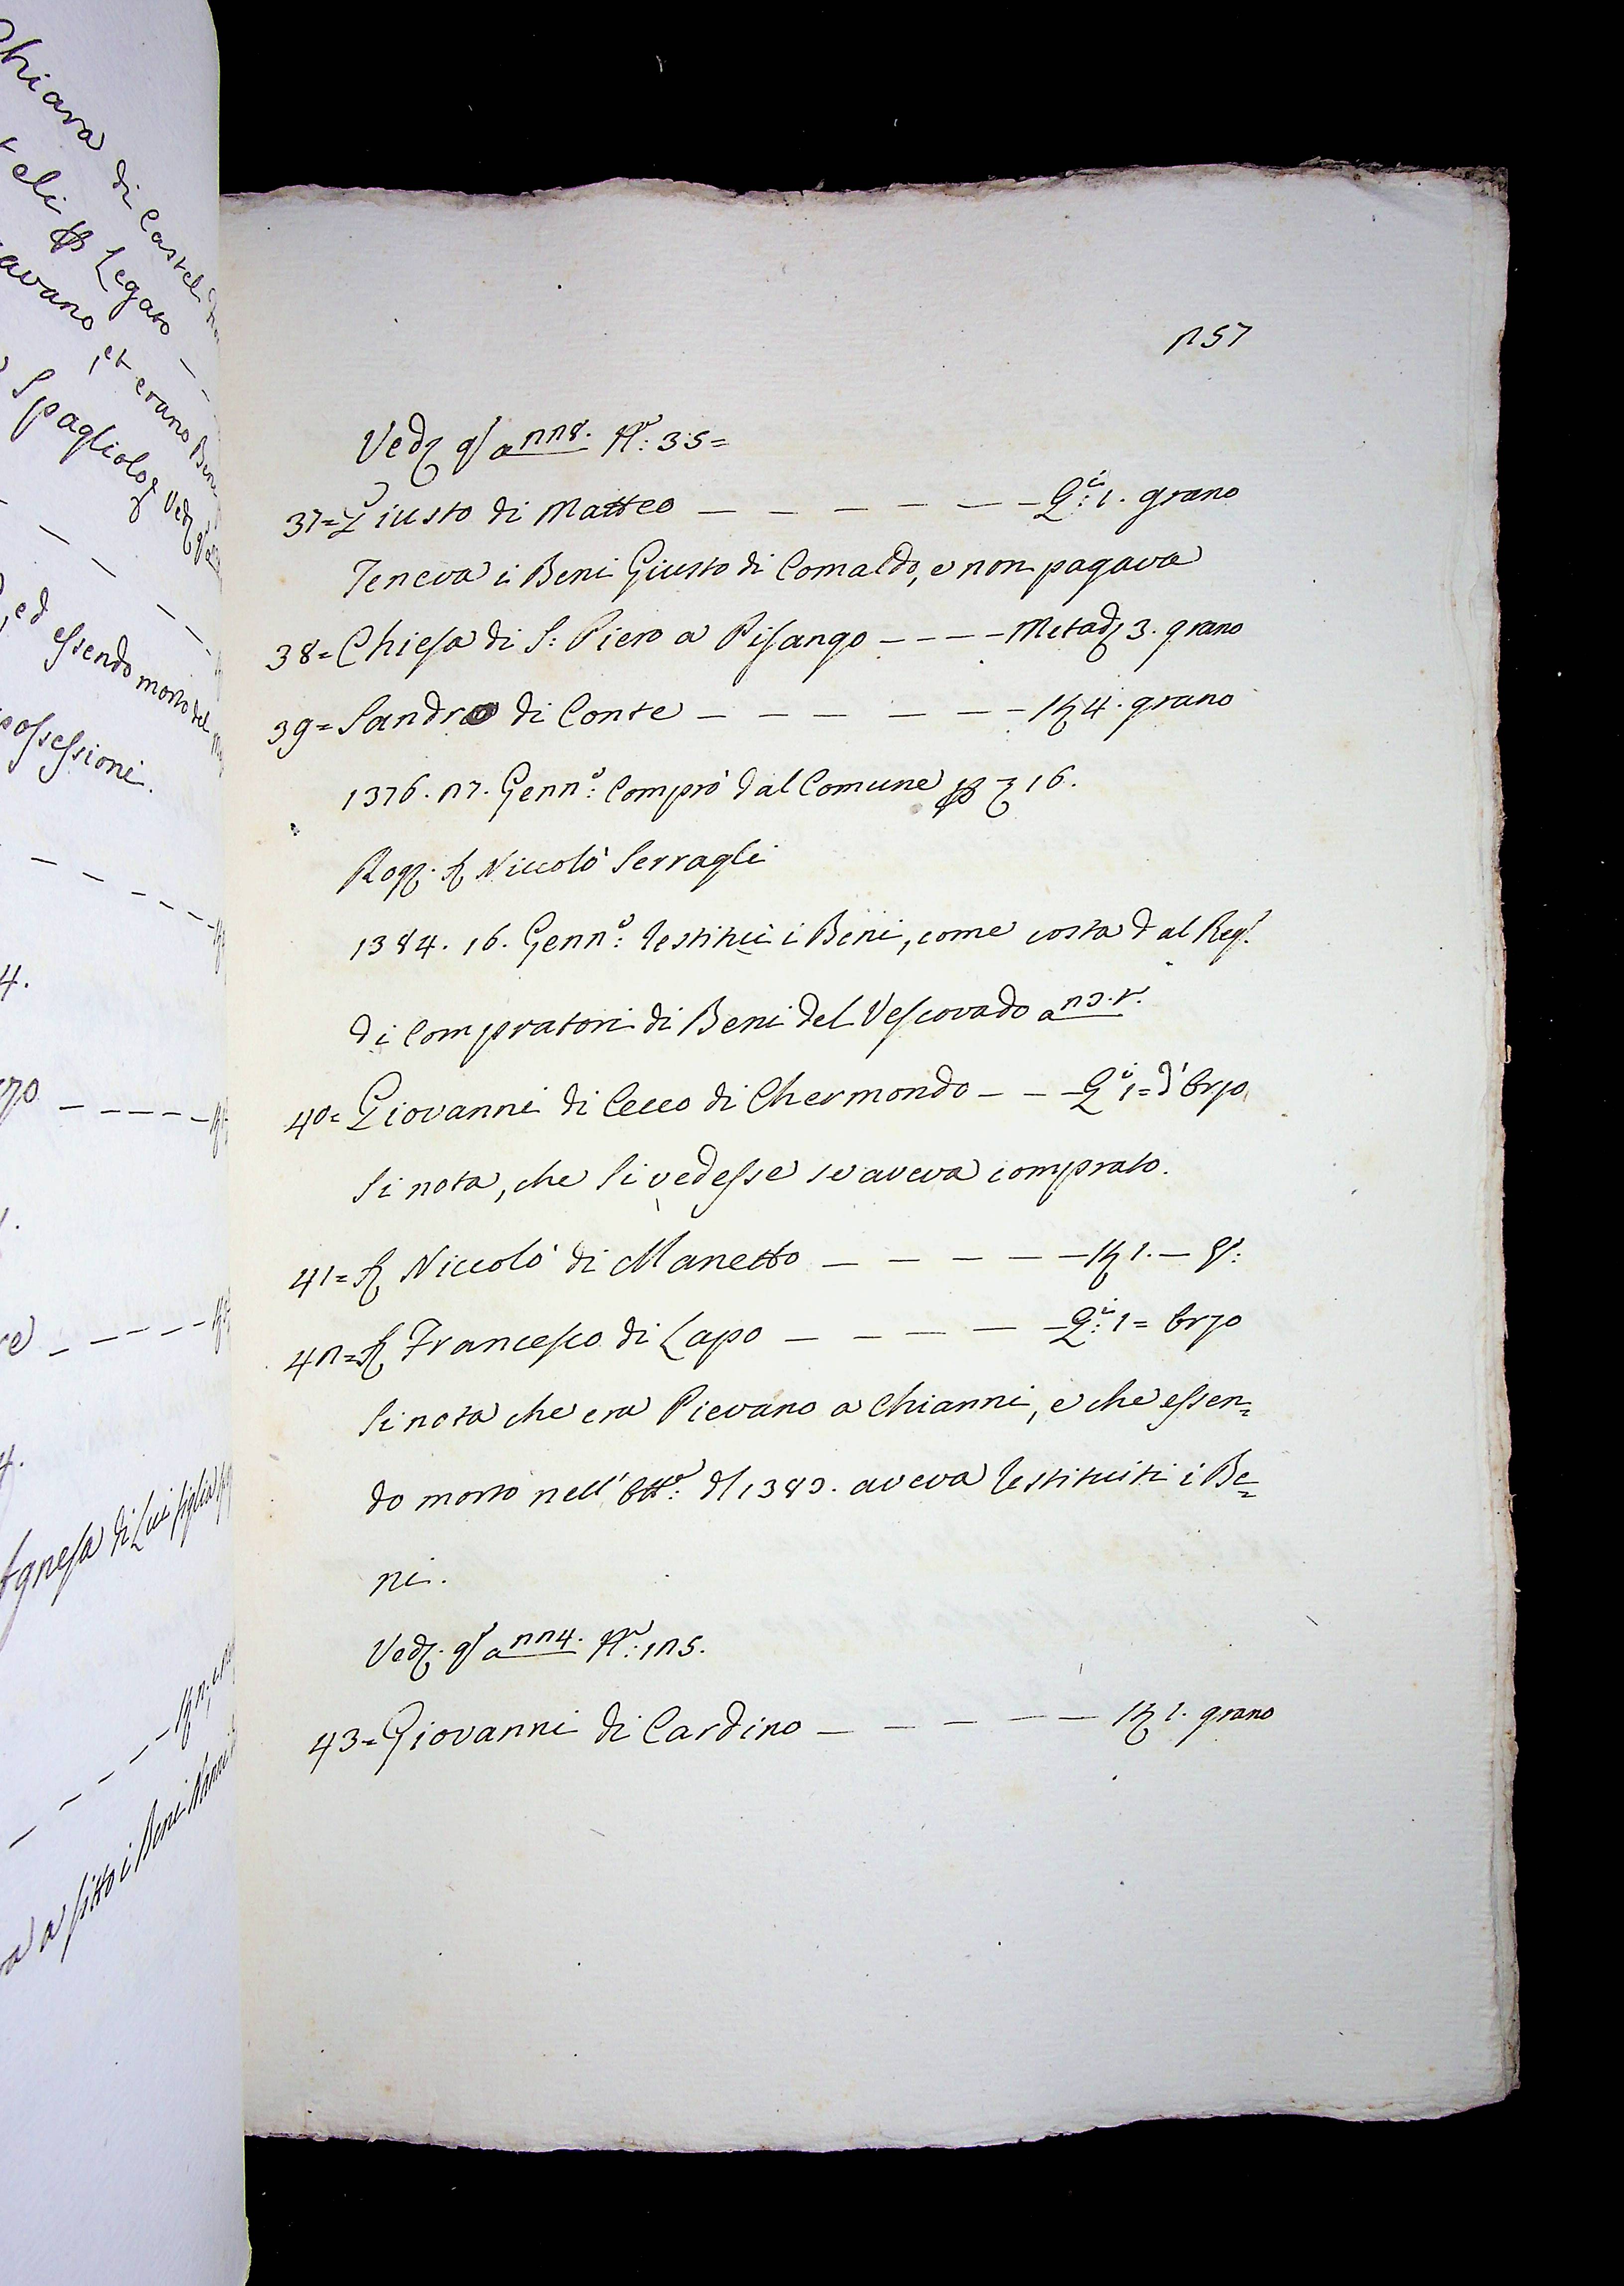 257
Ved. q.o a 228. N.o: 35=
37= Giusto di Matteo — — — — — — Q.i: 1. grano
Teneva i Beni Giusto di Comaldo, e non pagava
38= Chiesa di S: Piero a Pisango — — — — Metad. 3. grano
39= Sandro di Conte — — — — — — 4. grano
1376. 27. Genn.o: Comprò dal Comune 16.
Rog. S. Niccolò Serragli
1384. 16. Genn.o: restituì i Beni, come costa dal Reg.o
di Compratori di Beni del Vescovado a
40= Giovanni di Cecco di Chermondo — — Q.i 1= d'Orzo
Si nota, che si vedesse se aveva comprato.
41= S. Niccolò di Manetto — — — — — 1. — g.:
42= S. Francesco di Lapo — — — — — Q.i: 1= Orzo
Si nota che era Pievano a Chianni, e che essen=
do morto nell' Ott.e: d. 1383. aveva restituiti i Be=
ni.
Ved. q.o a 224. N.o: 125.
43= Giovanni di Cardino — — — — — 1. grano
Chiara di Castel
Legato
avano
et erano Beni
Spagliolo
ed essendo morto del
possessioni.
4.
Agnesa di Lui figlia
a fitto i Beni Nanni